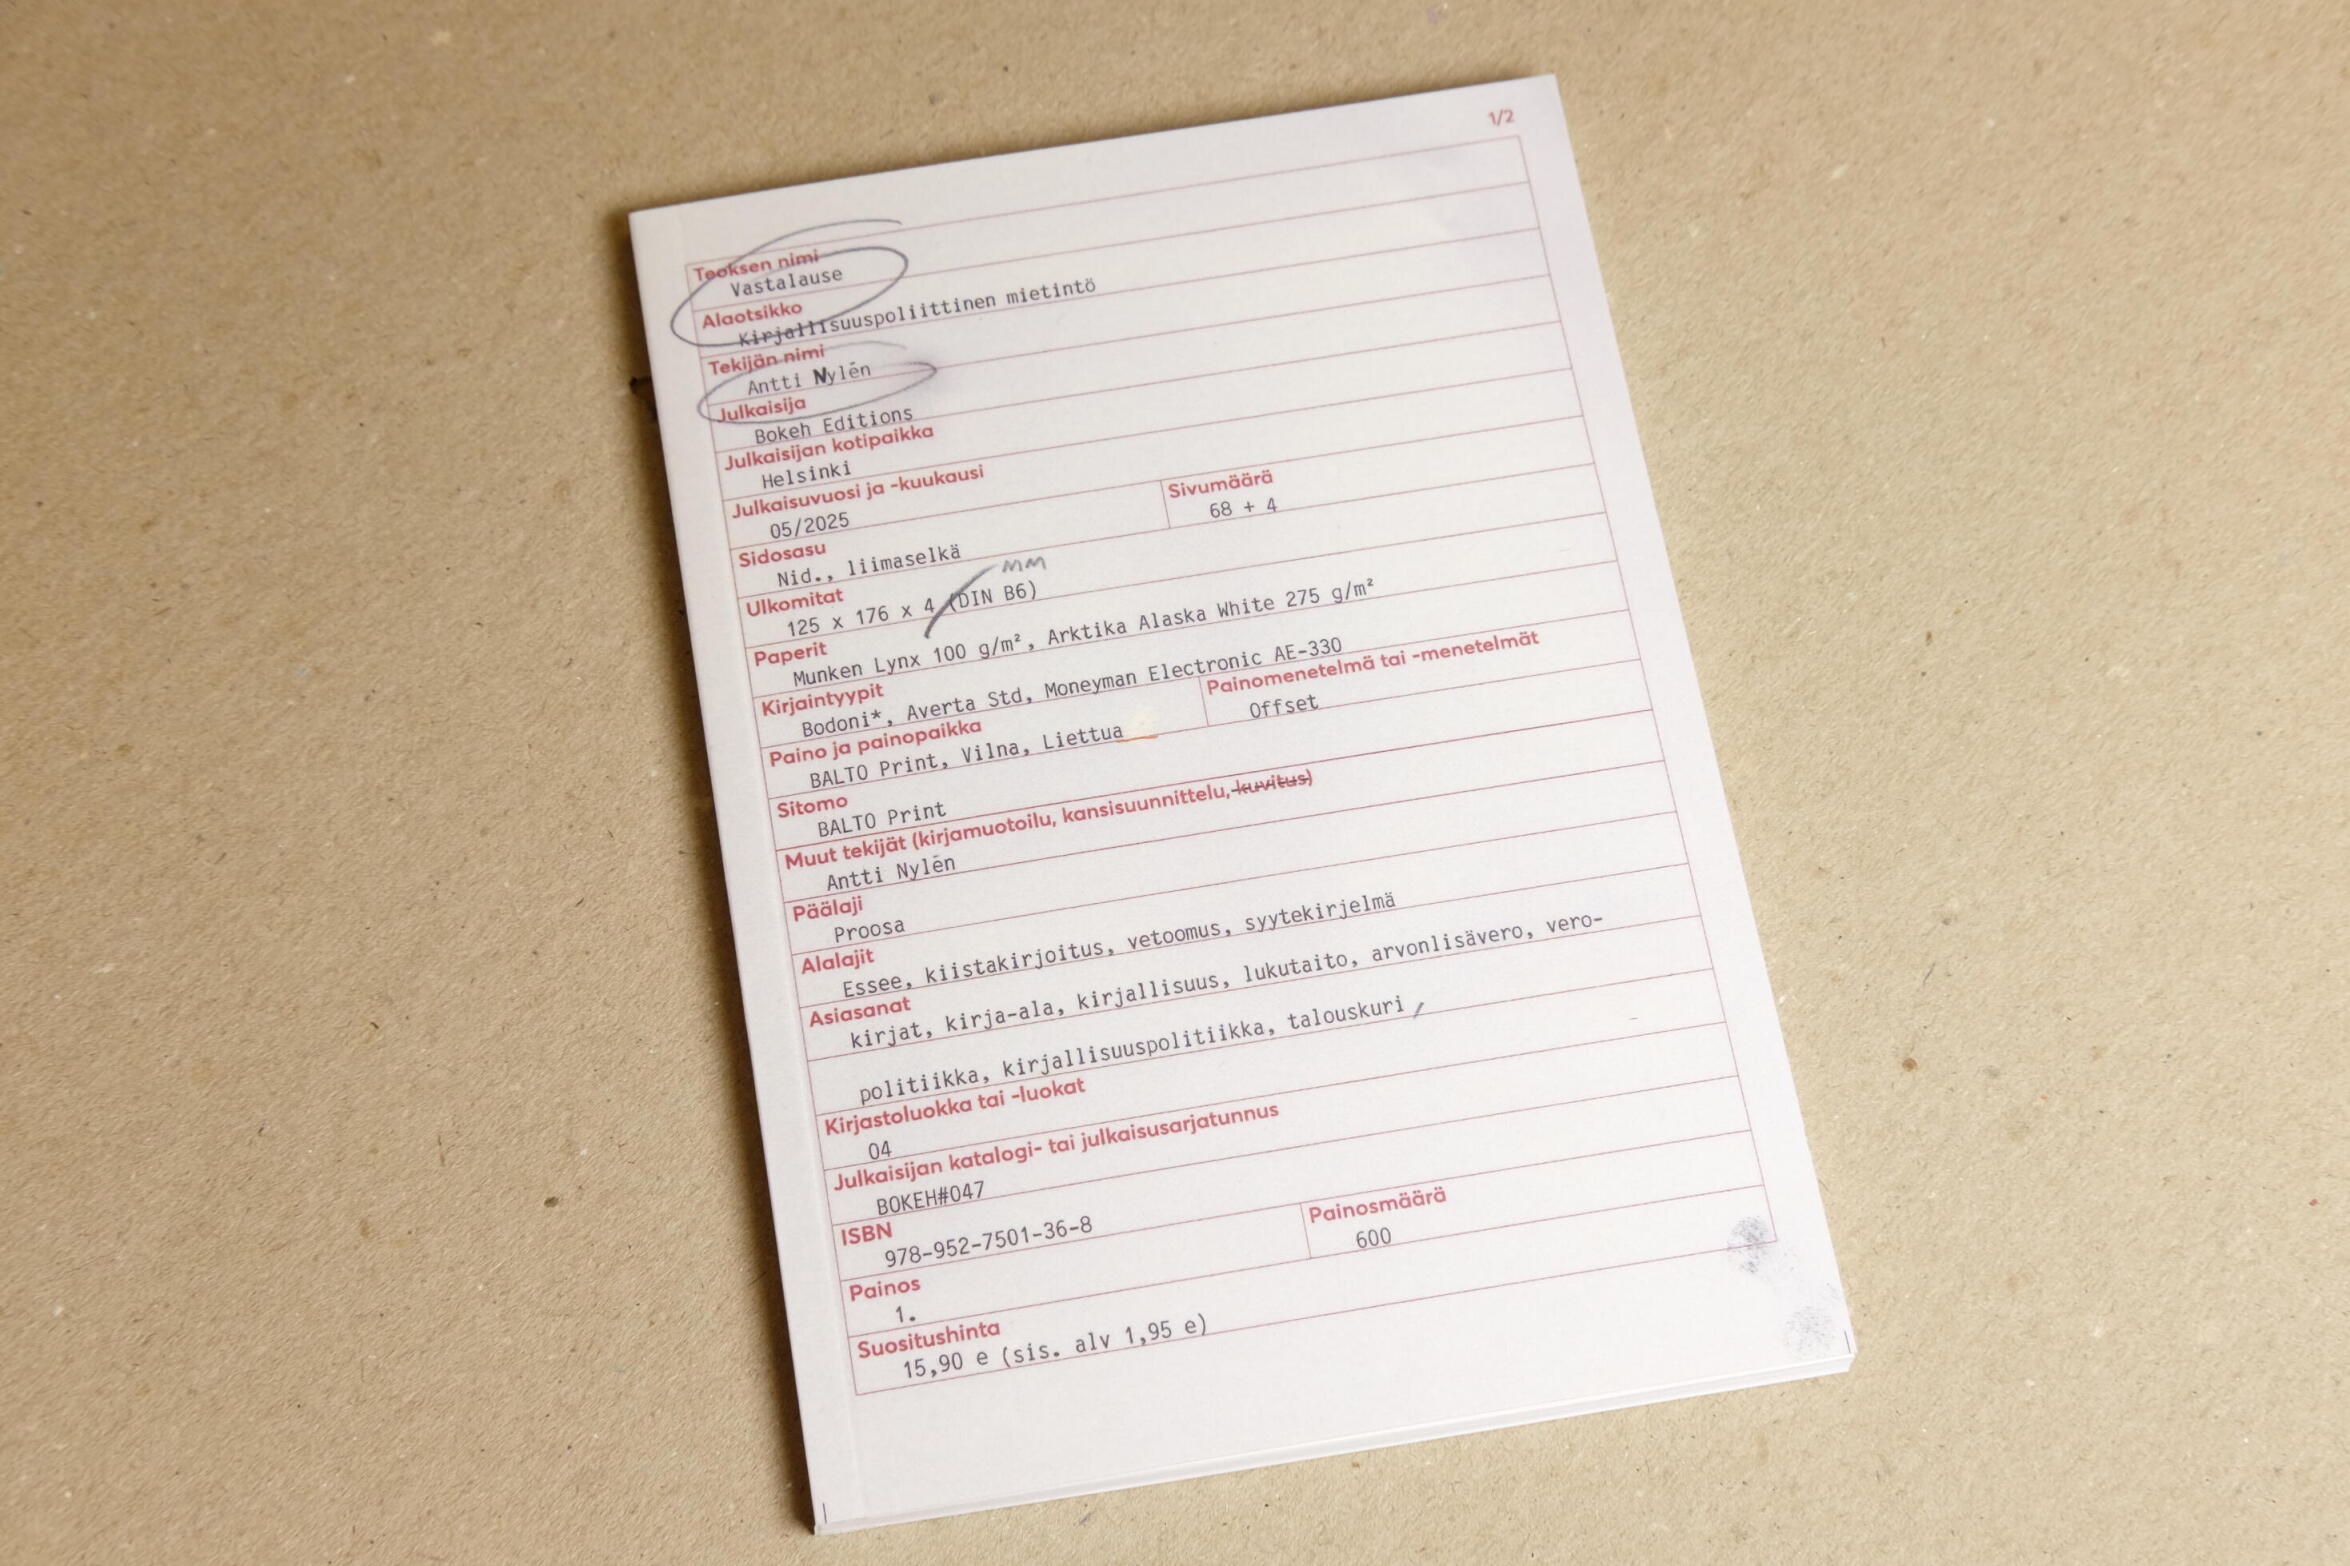 1/2
Teoksen nimi
Vastalause
Alaotsikko
Kirjallisuuspoliittinen mietintö
Tekijän nimi
Antti Nylén
Julkaisija
Bokeh Editions
Julkaisijan kotipaikka
Helsinki
Julkaisuvuosi ja -kuukausi
05/2025
Sivumäärä
68 + 4
Sidosasu
Nid., liimaselkä
Ulkomitat
MM
125 x 176 x 4 (DIN B6)
Paperit
Munken Lynx 100 g/m², Arktika Alaska White 275 g/m²
Kirjaintyypit
Bodoni*, Averta Std, Moneyman Electronic AE-330
Paino ja painopaikka
BALTO Print, Vilna, Liettua
Painomenetelmä tai -menetelmät
Offset
Sitomo
BALTO Print
Muut tekijät (kirjamuotoilu, kansisuunnittelu, kuvitus)
Antti Nylén
Päälaji
Proosa
Alalajit
Essee, kiistakirjoitus, vetoomus, syytekirjelmä
Asiasanat
kirjat, kirja-ala, kirjallisuus, lukutaito, arvonlisävero, vero-
politiikka, kirjallisuuspolitiikka, talouskuri
Kirjastoluokka tai -luokat
04
Julkaisijan katalogi- tai julkaisusarjatunnus
BOKEH#047
ISBN
978-952-7501-36-8
Painosmäärä
600
Painos
1.
Suositushinta
15,90 e (sis. alv 1,95 e)